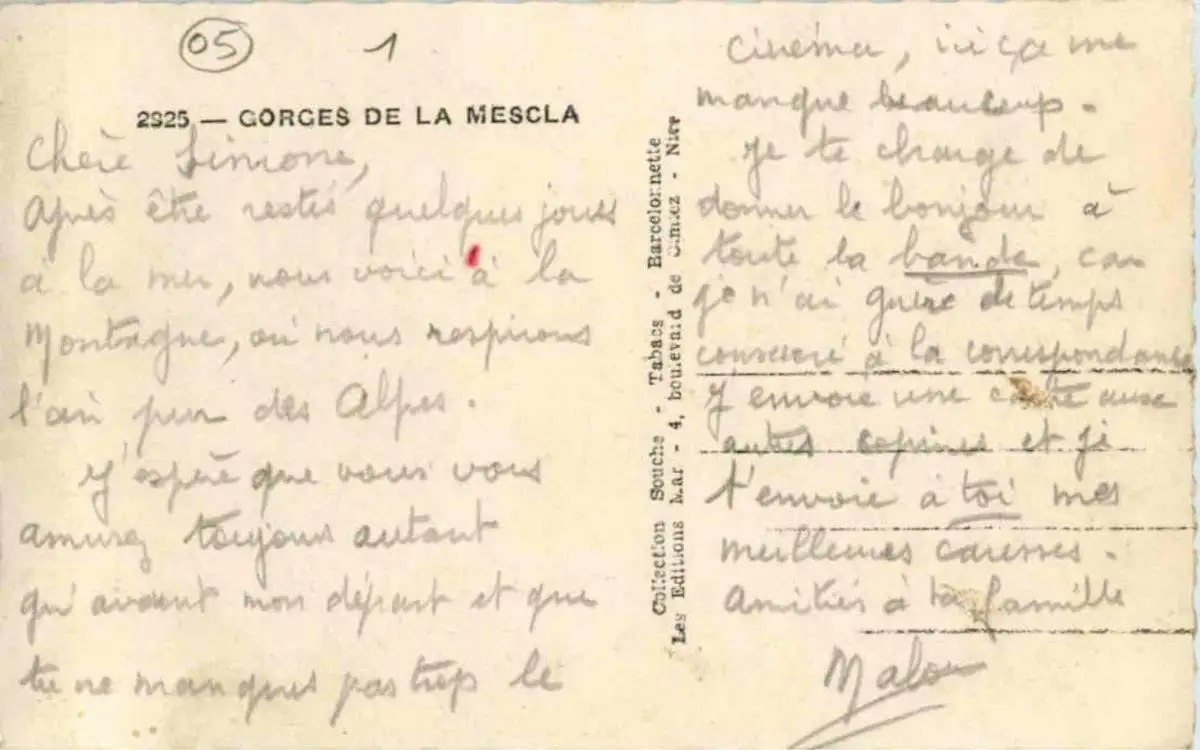 05
1
2925 — GORGES DE LA MESCLA
Chère Simone,
Après être restés quelques jours
à la mer, nous voici à la
Montagne, où nous respirons
l'air pur des Alpes.
J'espère que vous vous
amusez toujours autant
qu'avant mon départ et que
tu ne manques pas trop le
Collection Souche - Tabacs - Barcelonnette
Les Editions Mar - 4, boulevard de Cimiez - Nice
cinéma, ici ça me
manque beaucoup.
Je te charge de
donner le bonjour à
toute la bande, car
je n'ai guère de temps
consacré à la correspondance
J'envoie une carte aux
autres copines et je
t'envoie à toi mes
meilleures caresses.
Amitiés à ta famille
Malou